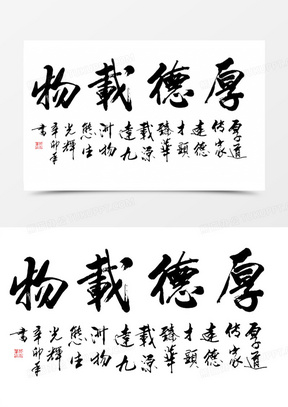 厚德載物
厚道
传家
達德
才顯
臻華
載源
達九
洲物
態生
光輝
辛卯年
書
厚德載物
厚道
传家
達德
才顯
臻華
載源
達九
洲物
態生
光輝
辛卯年
書